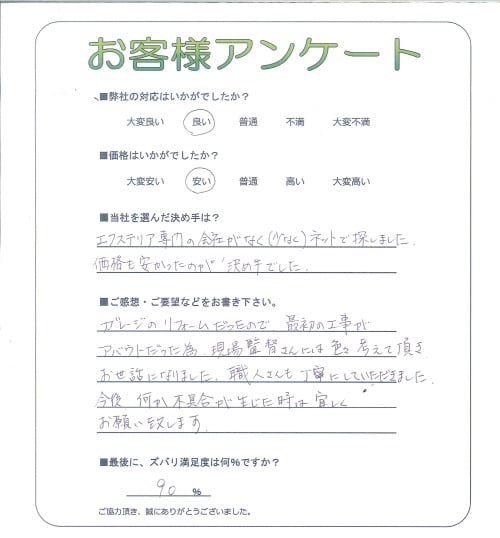 お客様アンケート
■弊社の対応はいかがでしたか？
大変良い 良い 普通 不満 大変不満
■価格はいかがでしたか？
大変安い 安い 普通 高い 大変高い
■当社を選んだ決め手は？
エクステリア専門の会社がなく(少なく)ネットで探しました.
価格も安かったのが決め手でした.
■ご感想・ご要望などをお書き下さい。
ガレージのリフォームだったので 最初の工事が
アバウトだった為、現場監督さんには色々考えて頂き
お世話になりました、職人さんも丁寧にしていただきました.
今後 何か不具合が生じた時は宜しく
お願い致します.
■最後に、ズバリ満足度は何％ですか？
90 %
ご協力頂き、誠にありがとうございました。